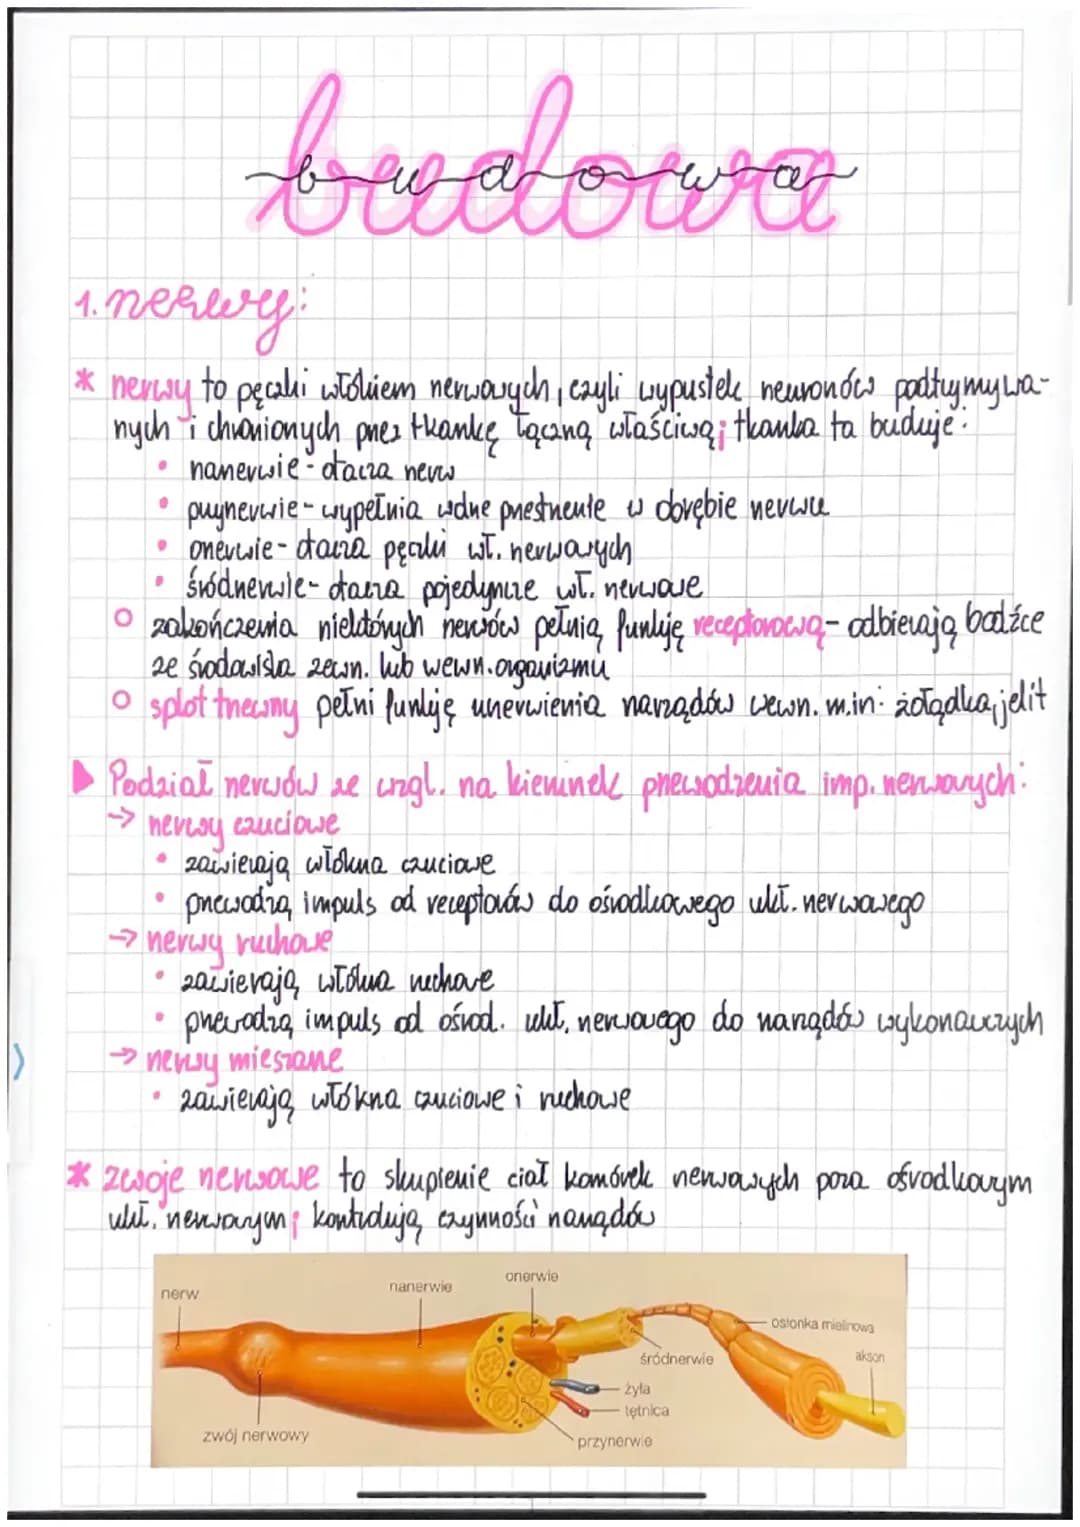 budowa
budowa
1. nerwy:
* nerwy to pęczki włókiem nerwowych, czyli wypustek neuronów podtrzymywa-
nych i chronionych przez tkankę łączną właściwą; tkanka ta buduje:
• nanerwie - otacza nerw
• przynerwie - wypełnia wolne przestrzenie w dorębie nerwu
• onerwie - otacza pęczki wł. nerwowych
• śródnerwie - otacza pojedyncze wł. nerwowe
○ zakończenia niektórych nerwów pełnią funkję receptorową - odbierają bodźce
ze środowiska zewn. lub wewn. organizmu
○ splot trzewny pełni funkję unerwienia narządów wewn. m.in: żołądka, jelit
▶ Podział nerwów ze wzgl. na kierunek przewodzenia imp. nerwowych:
→ nerwy czuciowe
• zawierają włókna czuciowe
• przewodzą impuls od receptorów do ośrodkowego ukł. nerwowego
→ nerwy ruchowe
• zawierają włókna ruchowe
• przewodzą impuls od ośrod. ukł. nerwowego do narządów wykonawczych
→ nerwy mieszane
• zawierają włókna czuciowe i ruchowe
* zwoje nerwowe to skupienie ciał komórek nerwowych poza ośrodkowym
ukł. nerwowym; kontrolują czynności narządów
nerw
nanerwie
onerwie
osłonka mielinowa
akson
śródnerwie
żyła
tętnica
zwój nerwowy
przynerwie